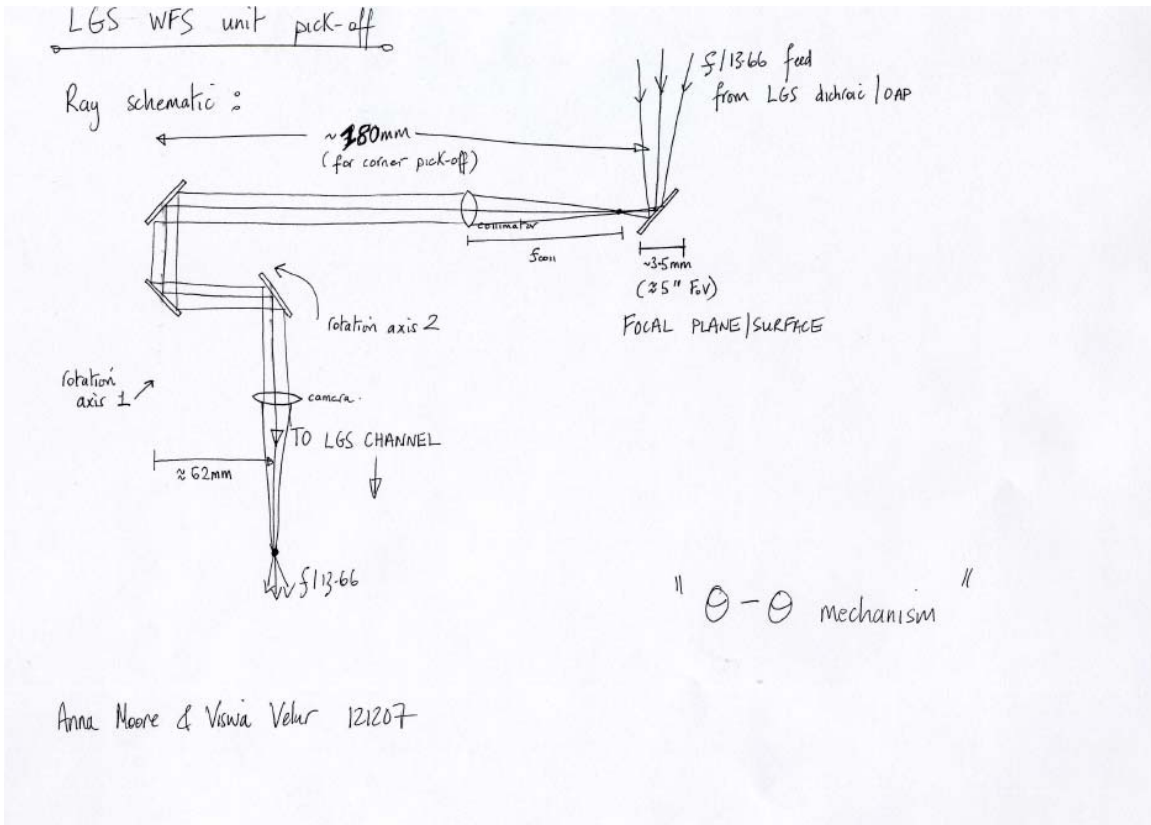 LGS WFS unit pick-off
Ray schematic :
f/13.66 feed
from LGS dichroic / OAP
~180mm
(for corner pick-off)
collimator
fcoll
~3.5mm
(≈5" FoV)
FOCAL PLANE/SURFACE
rotation axis 2
rotation
axis 1
camera.
TO LGS CHANNEL
≈ 62mm
f/13.66
" θ-θ mechanism "
Anna Moore & Viswa Velur 121207